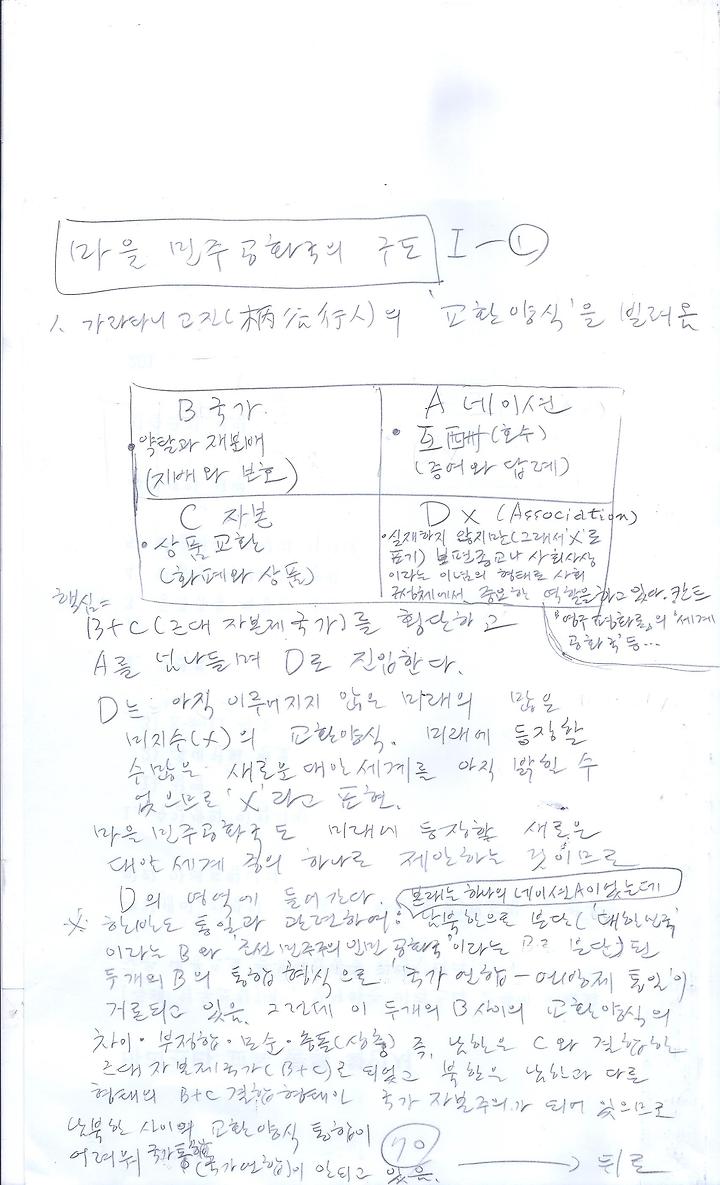 마을 민주공화국의 구도 I-①
1. 가라타니 고진(柄谷行人)의 '교환양식'을 빌려옴
B 국가
• 약탈과 재분배
(지배와 보호)
A 네이션
• 互酬(호수)
(증여와 답례)
C 자본
• 상품교환
(화폐와 상품)
D X (Association)
• 실재하지 않지만(그래서 'X'로
표기) 보편종교나 사회사상
이라는 이념의 형태로 사회
구성체에서 중요한 역할을 하고 있다. 칸트
『영구평화론』의 '세계
공화국' 등...
핵심=
B+C(근대 자본제 국가)를 횡단하고
A를 넘나들며 D로 진입한다.
D는 아직 이루어지지 않은 미래의 많은
미지수(X)의 교환양식. 미래에 등장할
수많은 새로운 대안세계를 아직 밝힐 수
없으므로 'X'라고 표현.
마을 민주공화국도 미래에 등장할 새로운
대안세계 중의 하나로 제안하는 것이므로
D의 영역에 들어간다.
본래는 하나의 네이션A이었는데
※ 한반도 통일과 관련하여: 남북한으로 분단('대한민국'
이라는 B와 '조선민주주의인민공화국'이라는 B로 분단)된
두개의 B의 통합 형식으로 '국가연합-연방제 통일'이
거론되고 있음. 그런데 이 두개의 B사이의 교환양식의
차이·부정합·모순·충돌(상충) 즉, 남한은 C와 결합한
근대 자본제국가(B+C)로 되었고 북한은 남한과 다른
형태의 B+C 결합형태인 국가자본주의가 되어 있으므로
남북한 사이의 교환양식 통합이
어려워 국가통합(국가연합)이 안되고 있음. → 뒤로
70